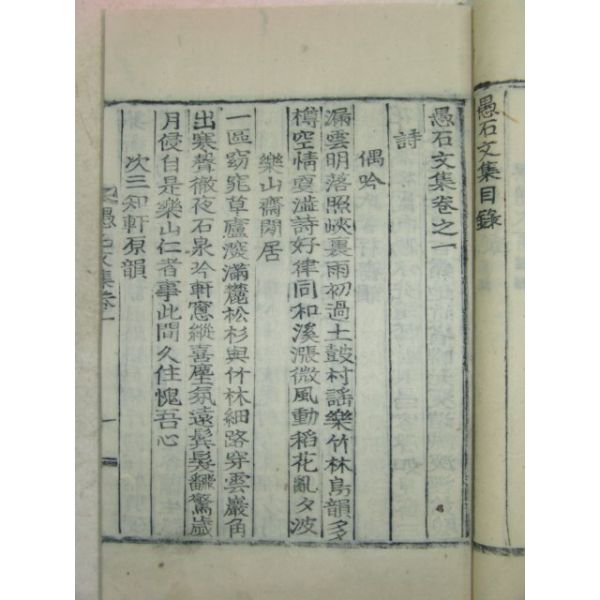 愚石文集目錄
愚石文集卷之一
詩
偶吟
漏雲明落照峽裏雨初過土鼓村謠樂竹林鳥韻多
樽空情更溢詩好律同和溪漲微風動稻花亂夕波
樂山齋閒居
一區窈窕草廬深滿麓松杉與竹林細路穿雲巖角
出寒聲徹夜石泉吟軒窓縱喜塵氛遠鬂髮翻驚歲
月侵自是樂山仁者事此間久住愧吾心
次三知軒原韻
愚石文集卷一
一